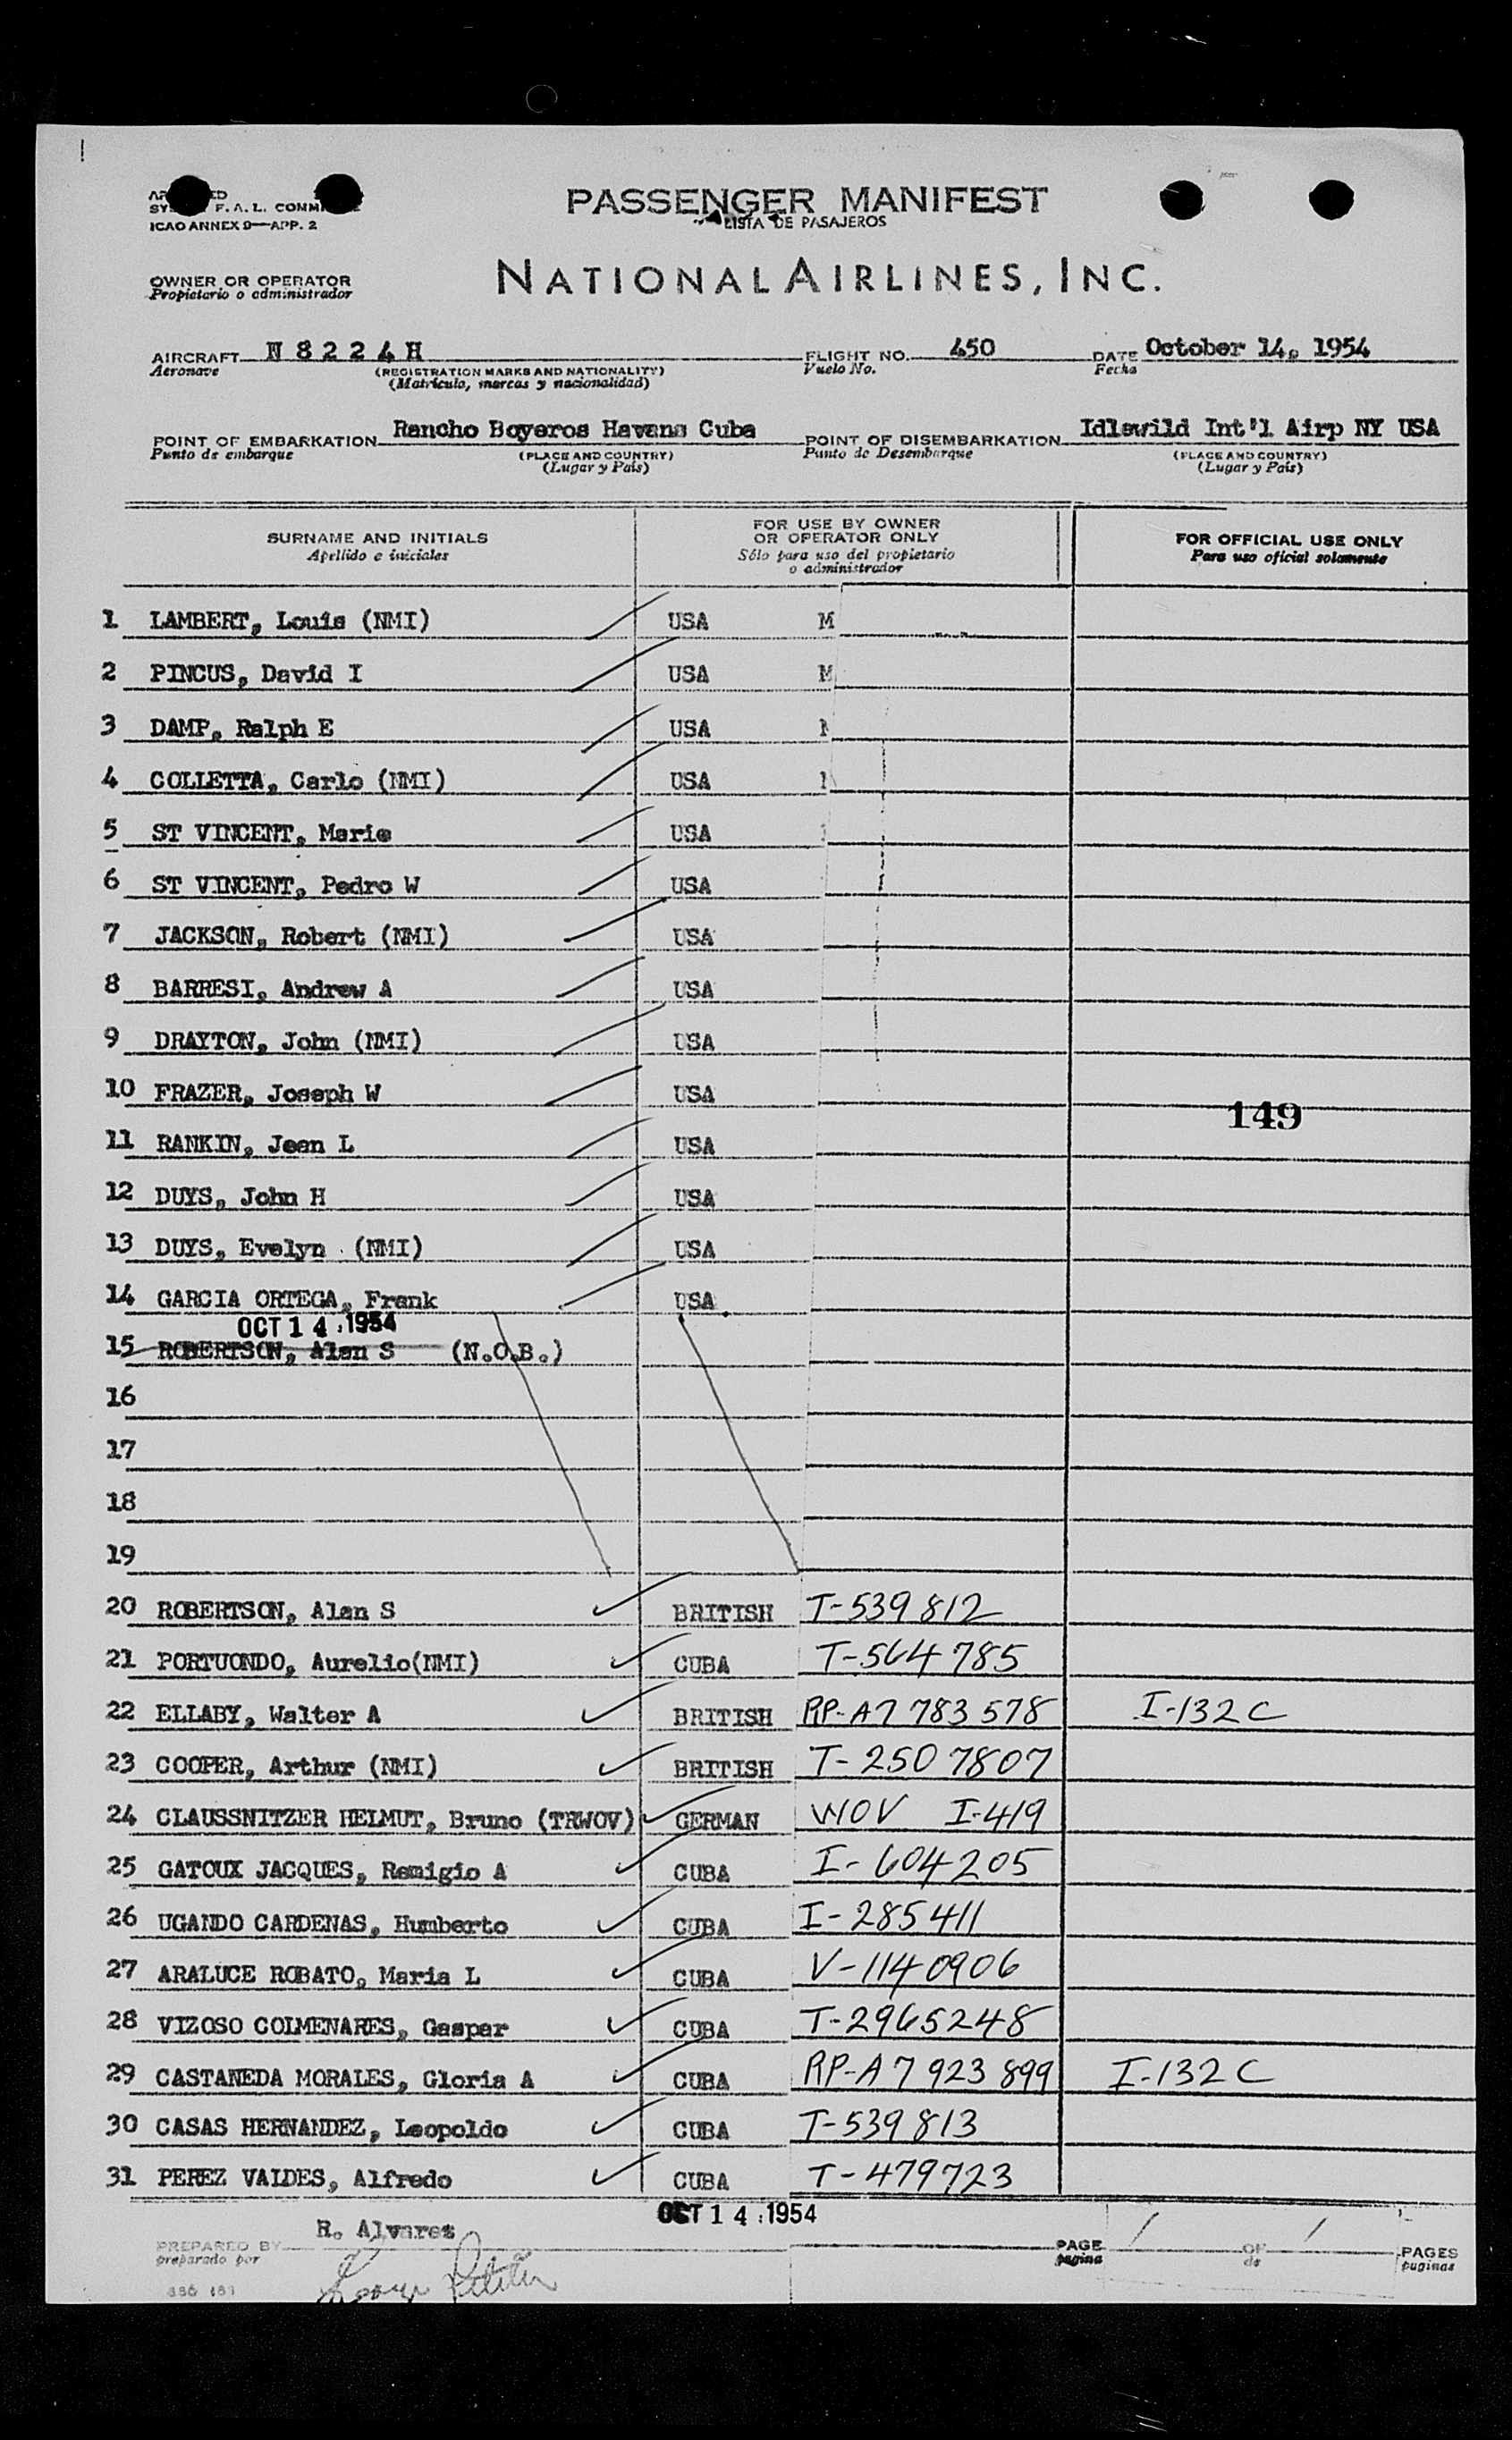 PASSENGER MANIFEST
LISTA DE PASAJEROS
F. A. L.
ICAO ANNEX 9—APP. 2
OWNER OR OPERATOR
Propietario o administrador
NATIONAL AIRLINES, INC.
AIRCRAFT N 8 2 2 4 H FLIGHT NO. 450 DATE October 14, 1954
Aeronave (REGISTRATION MARKS AND NATIONALITY) Vuelo No. Fecha
(Matrícula, marcas y nacionalidad)
POINT OF EMBARKATION Rancho Boyeros Havana Cuba POINT OF DISEMBARKATION Idlewild Int'l Airp NY USA
Punto de embarque (PLACE AND COUNTRY) Punto de Desembarque (PLACE AND COUNTRY)
(Lugar y País) (Lugar y País)
SURNAME AND INITIALS FOR USE BY OWNER OR OPERATOR ONLY FOR OFFICIAL USE ONLY
Apellido e iniciales Sólo para uso del propietario o administrador Para uso oficial solamente
1 LAMBERT, Louis (NMI) USA M
2 PINCUS, David I USA M
3 DAMP, Ralph E USA
4 COLLETTA, Carlo (NMI) USA
5 ST VINCENT, Marie USA
6 ST VINCENT, Pedro W USA
7 JACKSON, Robert (NMI) USA
8 BARRESI, Andrew A USA
9 DRAYTON, John (NMI) USA
10 FRAZER, Joseph W USA
149
11 RANKIN, Jean L USA
12 DUYS, John H USA
13 DUYS, Evelyn (NMI) USA
14 GARCIA ORTEGA, Frank USA
OCT 14 1954
15 ROBERTSON, Alan S (N.O.B.)
16
17
18
19
20 ROBERTSON, Alan S BRITISH T-539812
21 PORTUONDO, Aurelio(NMI) CUBA T-564785
22 ELLABY, Walter A BRITISH RP-A7 783 578 I-132C
23 COOPER, Arthur (NMI) BRITISH T-250 7807
24 CLAUSSNITZER HELMUT, Bruno (TRWOV) GERMAN WOV I-419
25 GATOUX JACQUES, Remigio A CUBA I-604205
26 UGANDO CARDENAS, Humberto CUBA I-285411
27 ARALUCE ROBATO, Maria L CUBA V-1140906
28 VIZOSO COLMENARES, Gaspar CUBA T-2965248
29 CASTANEDA MORALES, Gloria A CUBA RP-A7 923 899 I-132C
30 CASAS HERNANDEZ, Leopoldo CUBA T-539813
31 PEREZ VALDES, Alfredo CUBA T-479723
OCT 14 1954
PREPARED BY R. Alvarez PAGE 1 OF 1 PAGES
preparado por pagina de paginas